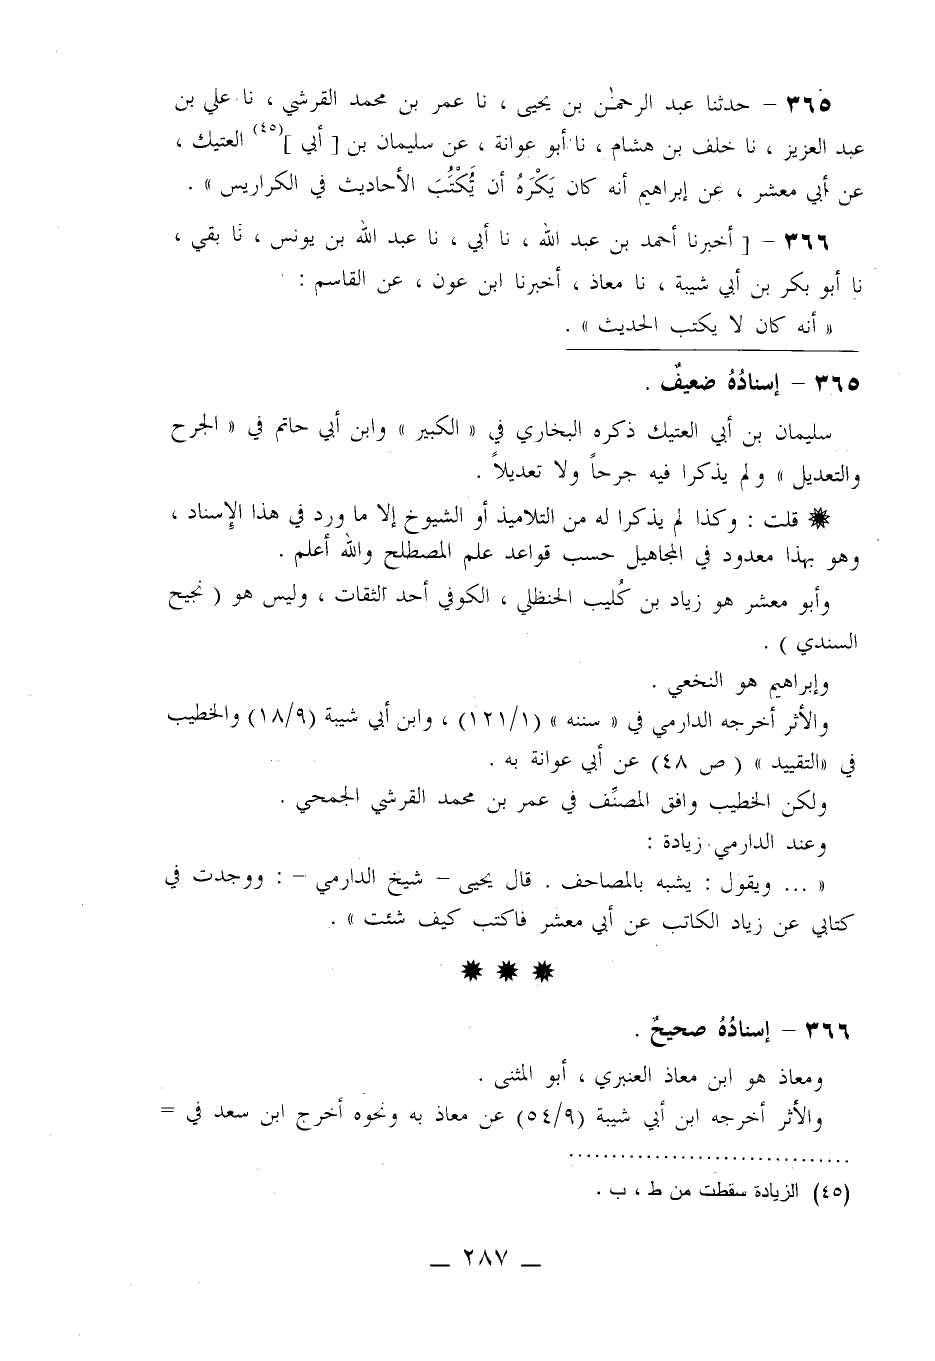 ٣٦٥ – حدثنا عبد الرحمٰن بن يحيى ، نا عمر بن محمد القرشي ، نا علي بن
عبد العزيز ، نا خلف بن هشام ، نا أبو عوانة ، عن سليمان بن [ أبي ](٤٥) العتيك ،
عن أبي معشر ، عن إبراهيم أنه كان يَكْرَهُ أن تُكْتَبَ الأحاديث في الكراريس » .
٣٦٦ – [ أخبرنا أحمد بن عبد الله ، نا أبي ، نا عبد الله بن يونس ، نا بقي ،
نا أبو بكر بن أبي شيبة ، نا معاذ ، أخبرنا ابن عون ، عن القاسم :
« أنه كان لا يكتب الحديث » .
٣٦٥ – إسنادُهُ ضعيفٌ .
سليمان بن أبي العتيك ذكره البخاري في « الكبير » وابن أبي حاتم في « الجرح
والتعديل » ولم يذكرا فيه جرحاً ولا تعديلاً .
✹ قلت : وكذا لم يذكرا له من التلاميذ أو الشيوخ إلا ما ورد في هذا الإسناد ،
وهو بهذا معدود في المجاهيل حسب قواعد علم المصطلح والله أعلم .
وأبو معشر هو زياد بن كُليب الحنظلي ، الكوفي أحد الثقات ، وليس هو ( نجيح
السندي ) .
وإبراهيم هو النخعي .
والأثر أخرجه الدارمي في « سننه » (١٢١/١) ، وابن أبي شيبة (١٨/٩) والخطيب
في «التقييد » ( ص ٤٨) عن أبي عوانة به .
ولكن الخطيب وافق المصنِّف في عمر بن محمد القرشي الجمحي .
وعند الدارمي زيادة :
« ... ويقول : يشبه بالمصاحف . قال يحيى – شيخ الدارمي – : ووجدت في
كتابي عن زياد الكاتب عن أبي معشر فاكتب كيف شئت » .
✹ ✹ ✹
٣٦٦ – إسنادُهُ صحيحٌ .
ومعاذ هو ابن معاذ العنبري ، أبو المثنى .
والأثر أخرجه ابن أبي شيبة (٥٤/٩) عن معاذ به ونحوه أخرج ابن سعد في =
(٤٥) الزيادة سقطت من ط ، ب .
— ٢٨٧ —